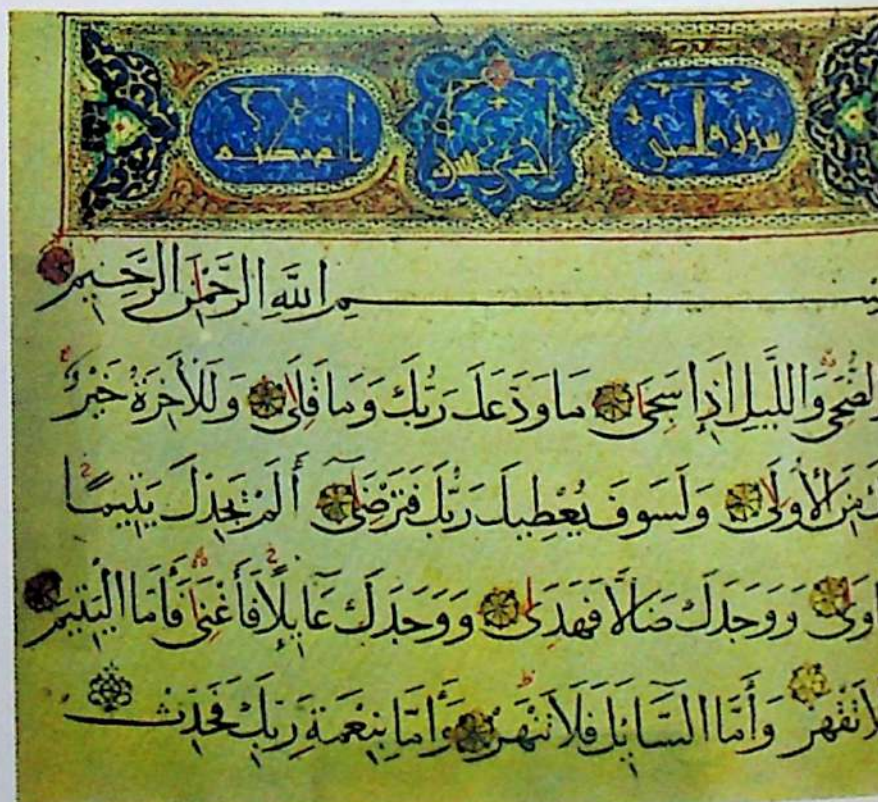 سورة والضحى
ـسْمِ اللَّهِ الرَّحْمٰنِ الرَّحِيمِ
لضُّحَى وَاللَّيْلِ اِذَا سَجَى مَا وَدَّعَكَ رَبُّكَ وَمَا قَلَى وَلَلْأَخِرَةُ خَيْرٌ
لَكَ مِنَ الْأُولَى وَلَسَوفَ يُعْطِيكَ رَبُّكَ فَتَرْضَى أَلَمْ يَجِدْكَ يَتِيمًا
اَوَى وَوَجَدَكَ ضَالًّا فَهَدَى وَوَجَدَكَ عَايِلًا فَأَغْنَى فَأَمَّا الْيَتِيمَ
لَا تَقْهَرْ وَأَمَّا السَّايِلَ فَلَا تَنْهَرْ وَأَمَّا بِنِعْمَةِ رَبِّكَ فَحَدِّثْ